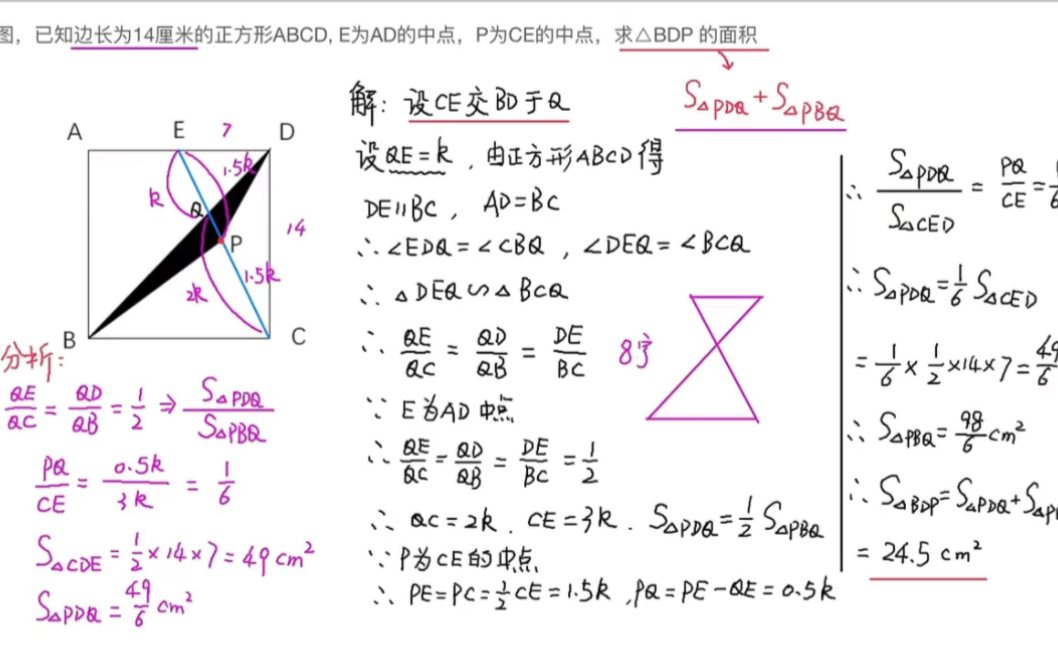 图，已知边长为14厘米的正方形ABCD, E为AD的中点，P为CE的中点，求△BDP 的面积
S△PDQ + S△PBQ
A E 7 D
1.5k
k
Q
14
P
1.5k
2k
B C
分析：
QE/QC = QD/QB = 1/2 ⇒ S△PDQ/S△PBQ
PQ/CE = 0.5k/3k = 1/6
S△CDE = 1/2 × 14 × 7 = 49 cm²
S△PDQ = 49/6 cm²
解：设CE交BD于Q
设QE=k，由正方形ABCD得
DE∥BC，AD=BC
∴ ∠EDQ=∠CBQ，∠DEQ=∠BCQ
∴ △DEQ∽△BCQ
∴ QE/QC = QD/QB = DE/BC
8字
∵ E为AD中点
∴ QE/QC = QD/QB = DE/BC = 1/2
∴ QC=2k，CE=3k．S△PDQ=1/2 S△PBQ
∵ P为CE的中点
∴ PE=PC=1/2 CE=1.5k，PQ=PE-QE=0.5k
∴ S△PDQ/S△CED = PQ/CE = 1/6
∴ S△PDQ = 1/6 S△CED
= 1/6 × 1/2 ×14×7 = 49/6
∴ S△PBQ = 98/6 cm²
∴ S△BDP = S△PDQ + S△P
= 24.5 cm²